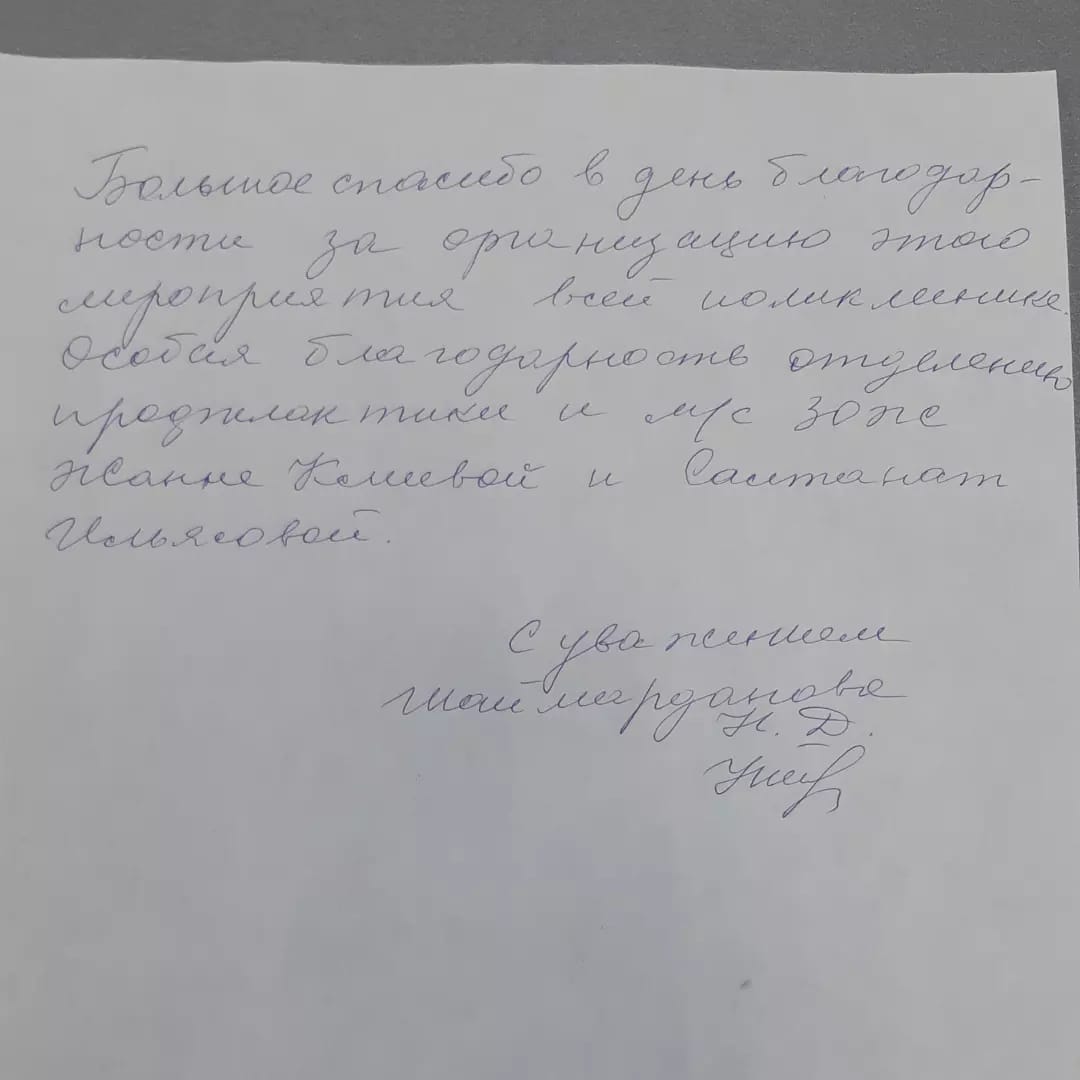 Большое спасибо в день благодар-
ности за организацию этого
мероприятия всей поликлинике.
Особая благодарность отделению
профилактики и м/с ЗОЖ
Жанне Клиевой и Салтанат
Ильясовой.
С уважением
Шаймарданова
Н. Д.